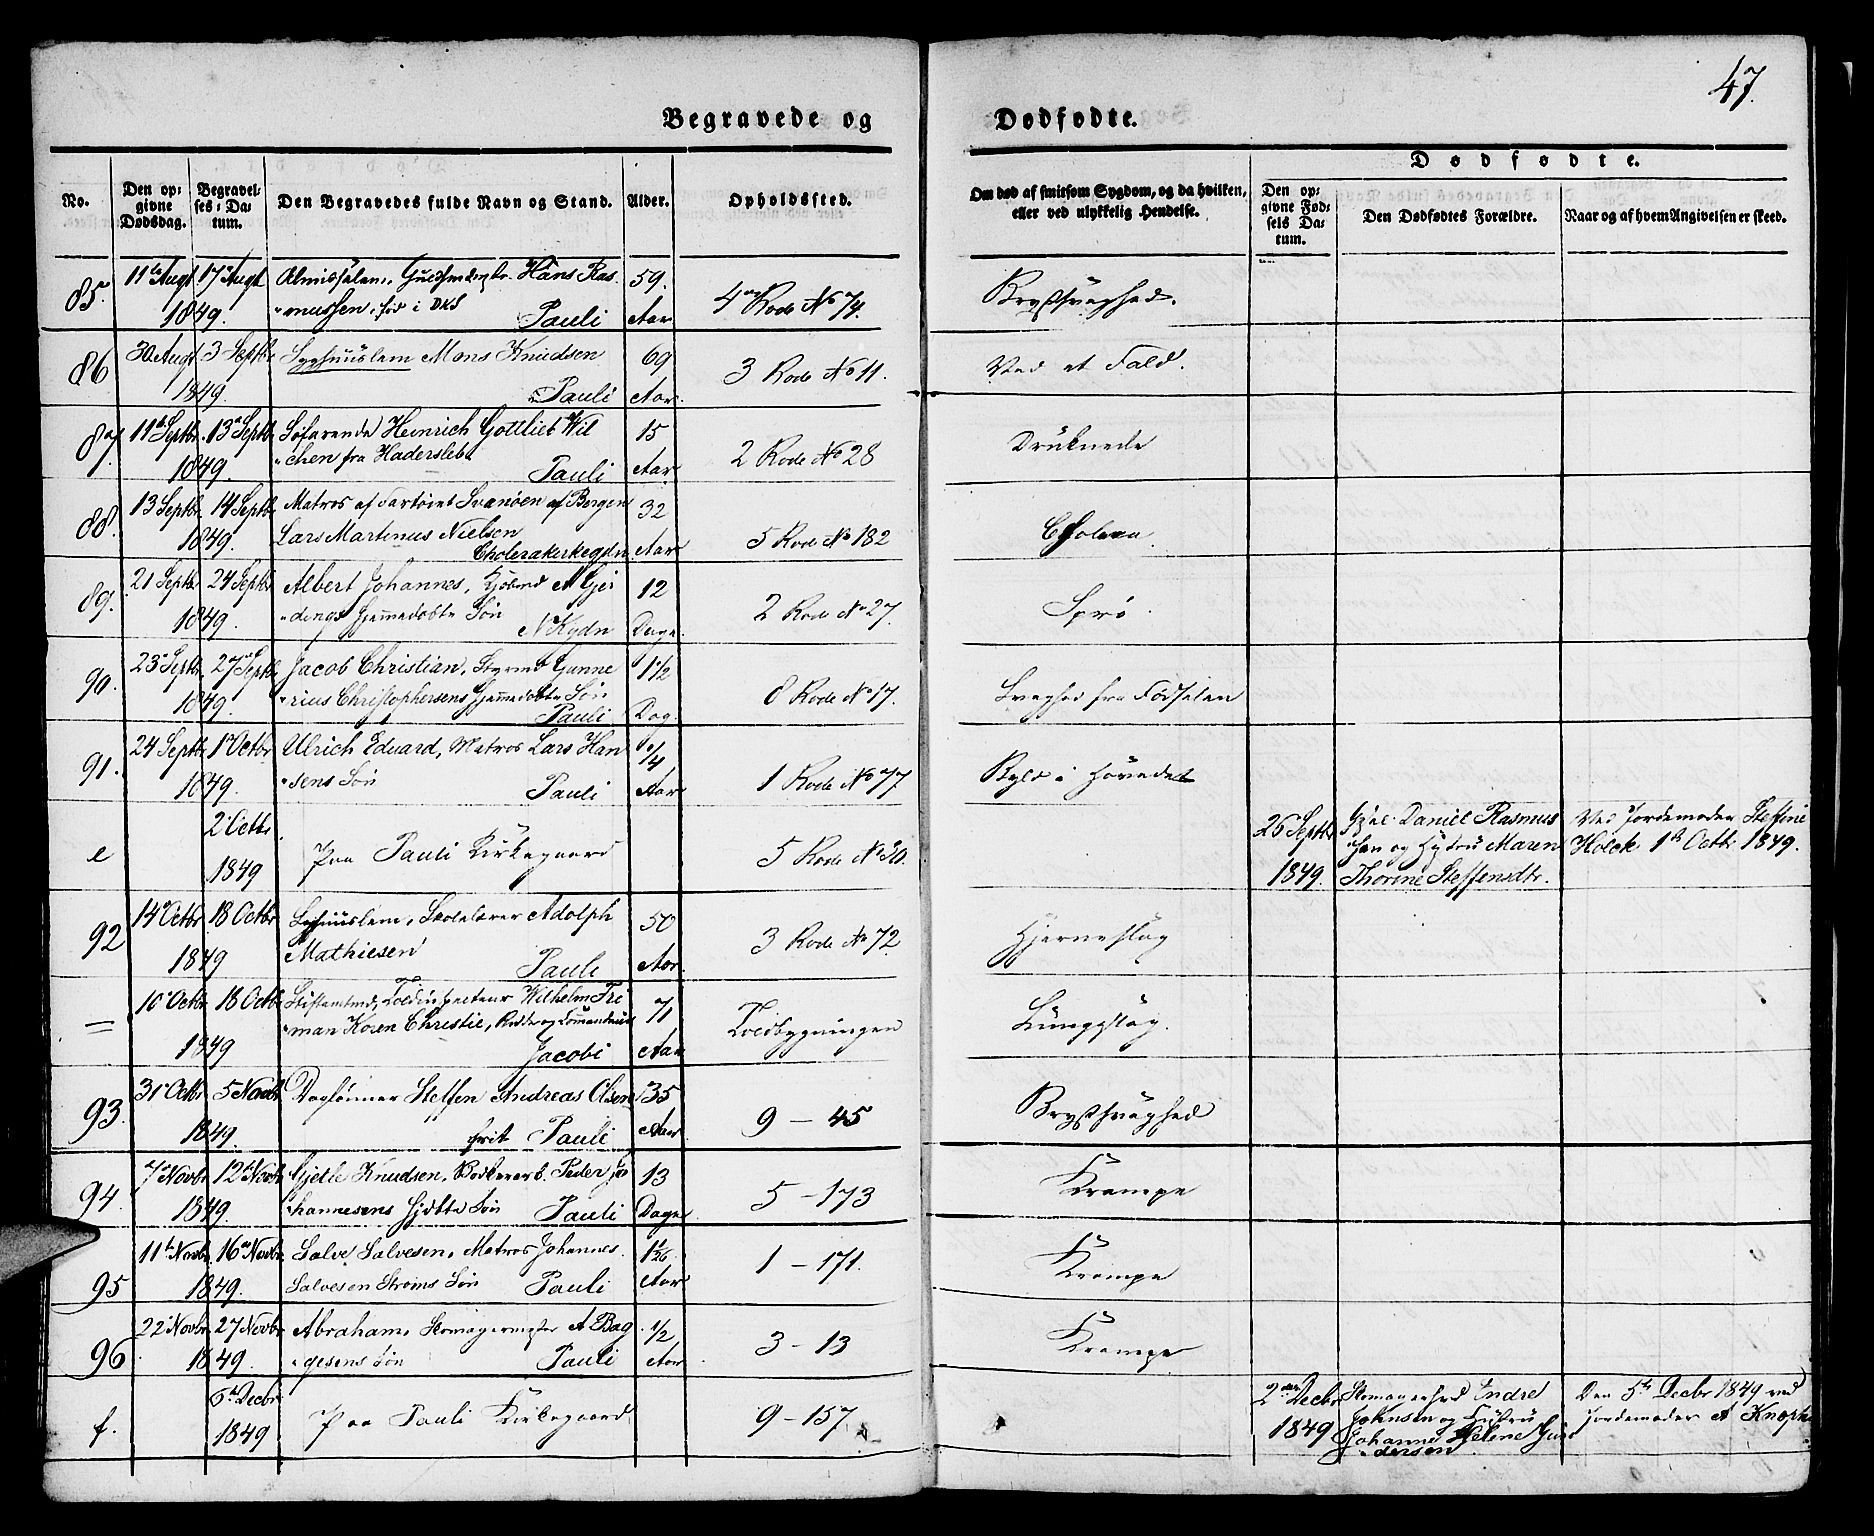 47.
Begravede og Dødfødte.
No.
Den opgivne Dødsdag.
Begravelses-Datum.
Den Begravedes fulde Navn og Stand.
Alder.
Opholdssted.
Om død af smitsom Sygdom, og da hvilken, eller ved ulykkelig Hendelse.
Dødfødte.
Den opgivne Fødsels Datum.
Den Dødfødtes Forældre.
Naar og af hvem Angivelsen er skeed.
85. 11te Augt 17 Augt Almisselem, Hans Ras- 59. 4de Rode No 74. Brystsvaghed.
1849. mussen, fød i Pauli Aar
86 30 Augt 3 Septbr Syghuuslem Mons Knudsen 69 3 Rode No 11. Ved et Fald.
1849. Pauli Aar.
87. 11te Septbr. 13 Septbr Søfarende Heinrich Gottlieb Wil 15 2 Rode No 28 Druknede
1849. chen fra Hadersleb Pauli Aar
88. 13 Septbr 14 Septbr Matros af Fartøiet Svanøen af Bergen 32 5 Rode No 182 Cholera.
1849. Lars Martinus Nielsen
Cholerakirkegdn Aar
89. 21 Septbr 24 Septbr Albert Johannes, A Gjer 12 2 Rode No 27. Sprø.
1849. dings hjemmedøbte Søn N Kgdn Dage.
90. 23 Septbr 27 Septbr Jacob Christian, Styrmd Gunne 1 1/2 8 Rode No 17. Svaghed fra Fødselen
1849. rius Christophersens hjemmedøbte Søn
Pauli Dag.
91. 24 Septbr 1 Octbr Ulrich Eduard, Matros Lars Han 1/4 1 Rode No 77 Byld i Hovedet
1849. sens Søn Pauli Aar
e 2 Octbr Paa Pauli Kirkegaard 5 Rode No 30. 26 Septbr Daniel Rasmus Ved Jordemoder Steffine
1849 1849. sen og Hustru Maren Holck 1ste Octbr 1849.
Thorine Steffensdtr.
92 14 Octbr 18 Octbr Syghuuslem, Skolelærer Adolph 50 3 Rode No 72. Hjerneslag
1849 Mathiesen Pauli Aar.
= 10 Octbr 18 Octbr Stiftamtmd, Toldinspecteur Wilhelm Fri 71 Toldbygningen Lungeslag.
1849 man Koren Christie, Ridder og Commandeur
Jacobi Aar
93. 31 Octbr 5 Novbr Daglønner Steffen Andreas Olsen 35 9 - 45 Brystsvaghed
1849. frit Pauli Aar
94. 7 Novbr 12te Novbr Gjetle Knudsen, Bødkerarb. Peder Jo 13 5 - 173 Krampe
1849. hannesens Søn Pauli Dage
95 11te Novbr 16 Novbr Salve Salvesen, Matros Johannes 1 - 171. Krampe
1849. Salvesen Strøms Søn Pauli Aar
96 22 Novbr. 27 Novbr Abraham, Skomagermester A Bag 1/2 3 - 13 Krampe
1849. gesens Søn Pauli Aar
f. 6te Decbr Paa Pauli Kirkegaard. 9 - 157 2den Decbr Endre Den 5te Decbr 1849 ved
1849 1849 Johnsen og Hustru Jordemoder A Knoph
Johanne Helene Gun
dersen